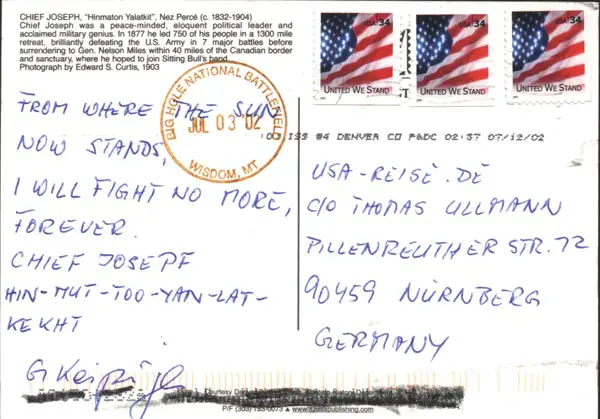 CHIEF JOSEPH, "Hinmaton Yalatkit", Nez Percé (c. 1832-1904)
Chief Joseph was a peace-minded, eloquent political leader and
acclaimed military genius. In 1877 he led 750 of his people in a 1300 mile
retreat, brilliantly defeating the U.S. Army in 7 major battles before
surrendering to Gen. Nelson Miles within 40 miles of the Canadian border
and sanctuary, where he hoped to join Sitting Bull's band.
Photograph by Edward S. Curtis, 1903
BIG HOLE NATIONAL BATTLEFIELD
JUL 03 '02
WISDOM, MT
USA 34
UNITED WE STAND
USA 34
UNITED WE STAND
USA 34
UNITED WE STAND
ISS #4 DENVER CO P&DC 02:57 07/12/02
FROM WHERE THE SUN
NOW STANDS,
I WILL FIGHT NO MORE,
FOREVER.
CHIEF JOSEPF
HIN-MUT-TOO-YAN-LAT-
KEKHT
USA-REISE.DE
C/O THOMAS ULLMANN
PILLENREUTHER STR. 72
90459 NÜRNBERG
GERMANY
Courtesy
P/F (303)